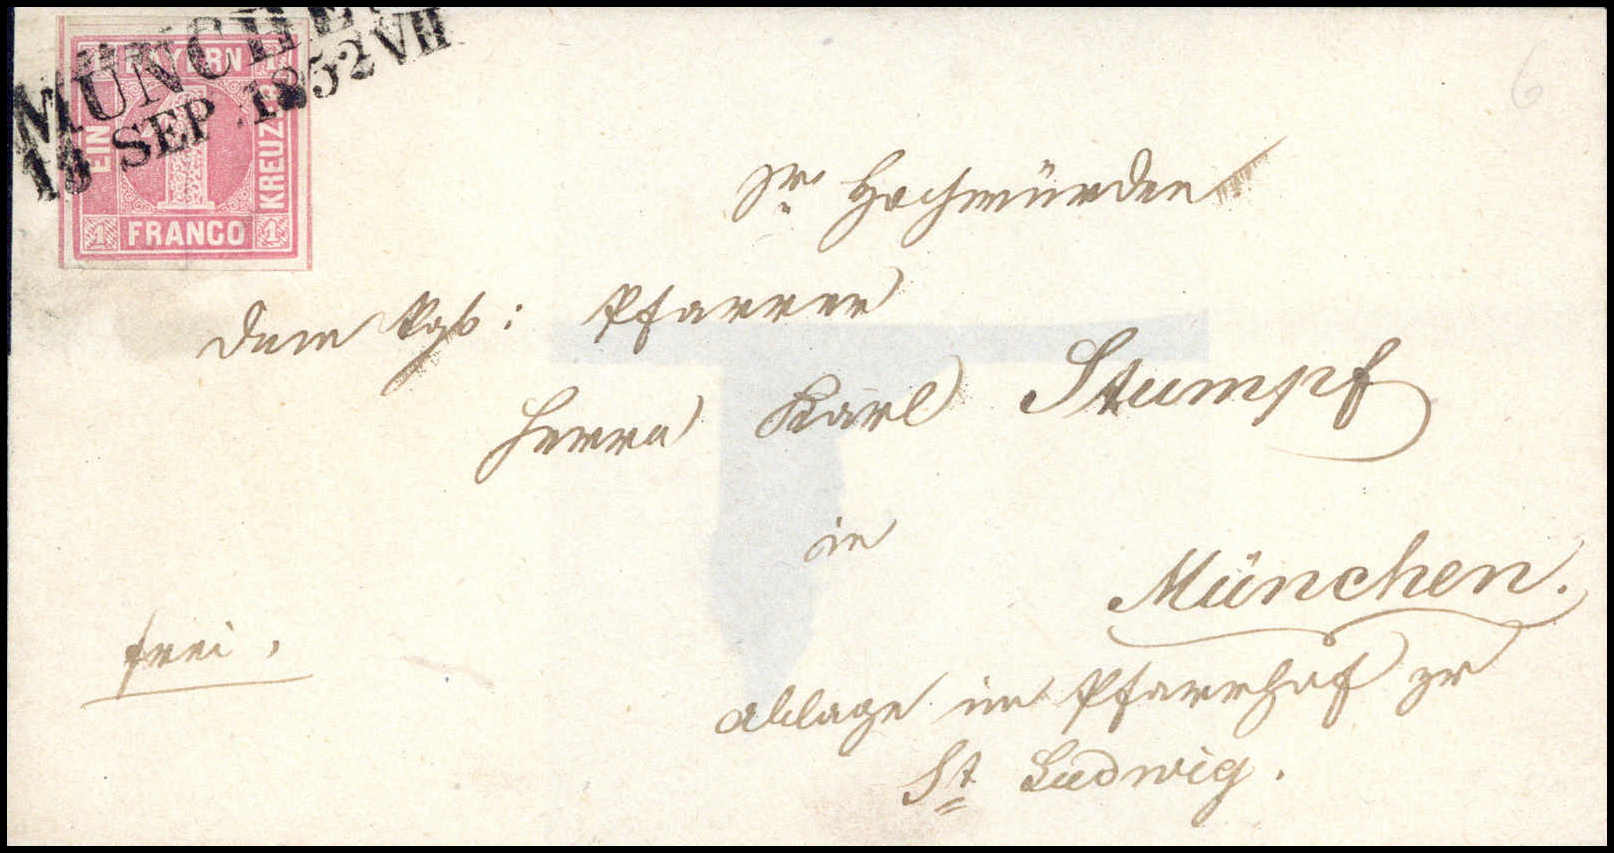 MÜNCHEN
13 SEP. 1852 VII
1 BAYERN 1
EIN
1
KREUZER
1 FRANCO 1
6
Sr. Hochwürden
dem Pfarrer
Herrn Karl Stumpf
in
München.
frei.
ablage im Pfarrhof zu
St. Ludwig.